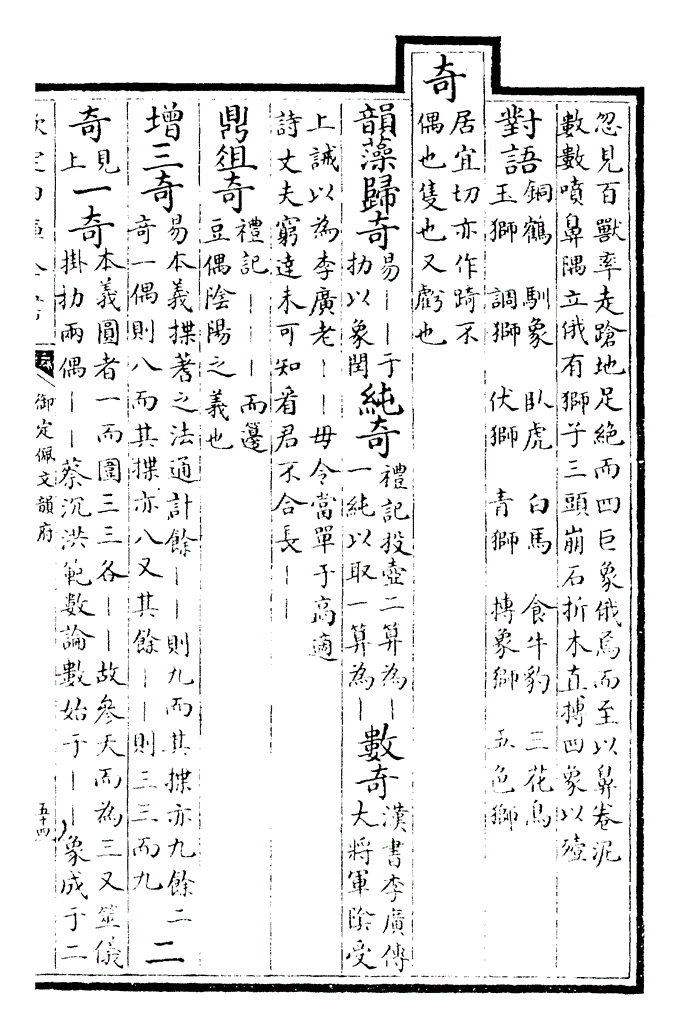 忽見百獸率走蹌地足絕而四巨象俄焉而至以鼻卷泥
數數噴鼻隅立俄有獅子三頭崩石折木直搏四象以殪
對語
銅鶴 馴象 臥虎 白馬 食牛豹 三花鳥
玉獅 調獅 伏獅 青獅 搏象獅 五色獅
奇
居宜切亦作踦不
偶也隻也又虧也
韻藻歸奇
易丨丨于
扐以象閏
純奇
禮記投壺二算為丨
一純以取一算為丨
數奇
漢書李廣傳
大將軍陰受
上誡以為李廣老丨丨毋令當單于高適
詩丈夫窮達未可知看君不合長丨丨
鼎俎奇
禮記丨丨丨而籩
豆偶陰陽之義也
增三奇
易本義揲蓍之法通計餘丨丨則九而其揲亦九餘二
奇一偶則八而其揲亦八又其餘丨丨則三三而九
二
奇
見
上
一奇
本義圓者一而圍三三各丨丨故參天而為三又筮儀
掛扐兩偶丨丨蔡沉洪範數論數始于丨丨象成于二
御定佩文韻府
五十四